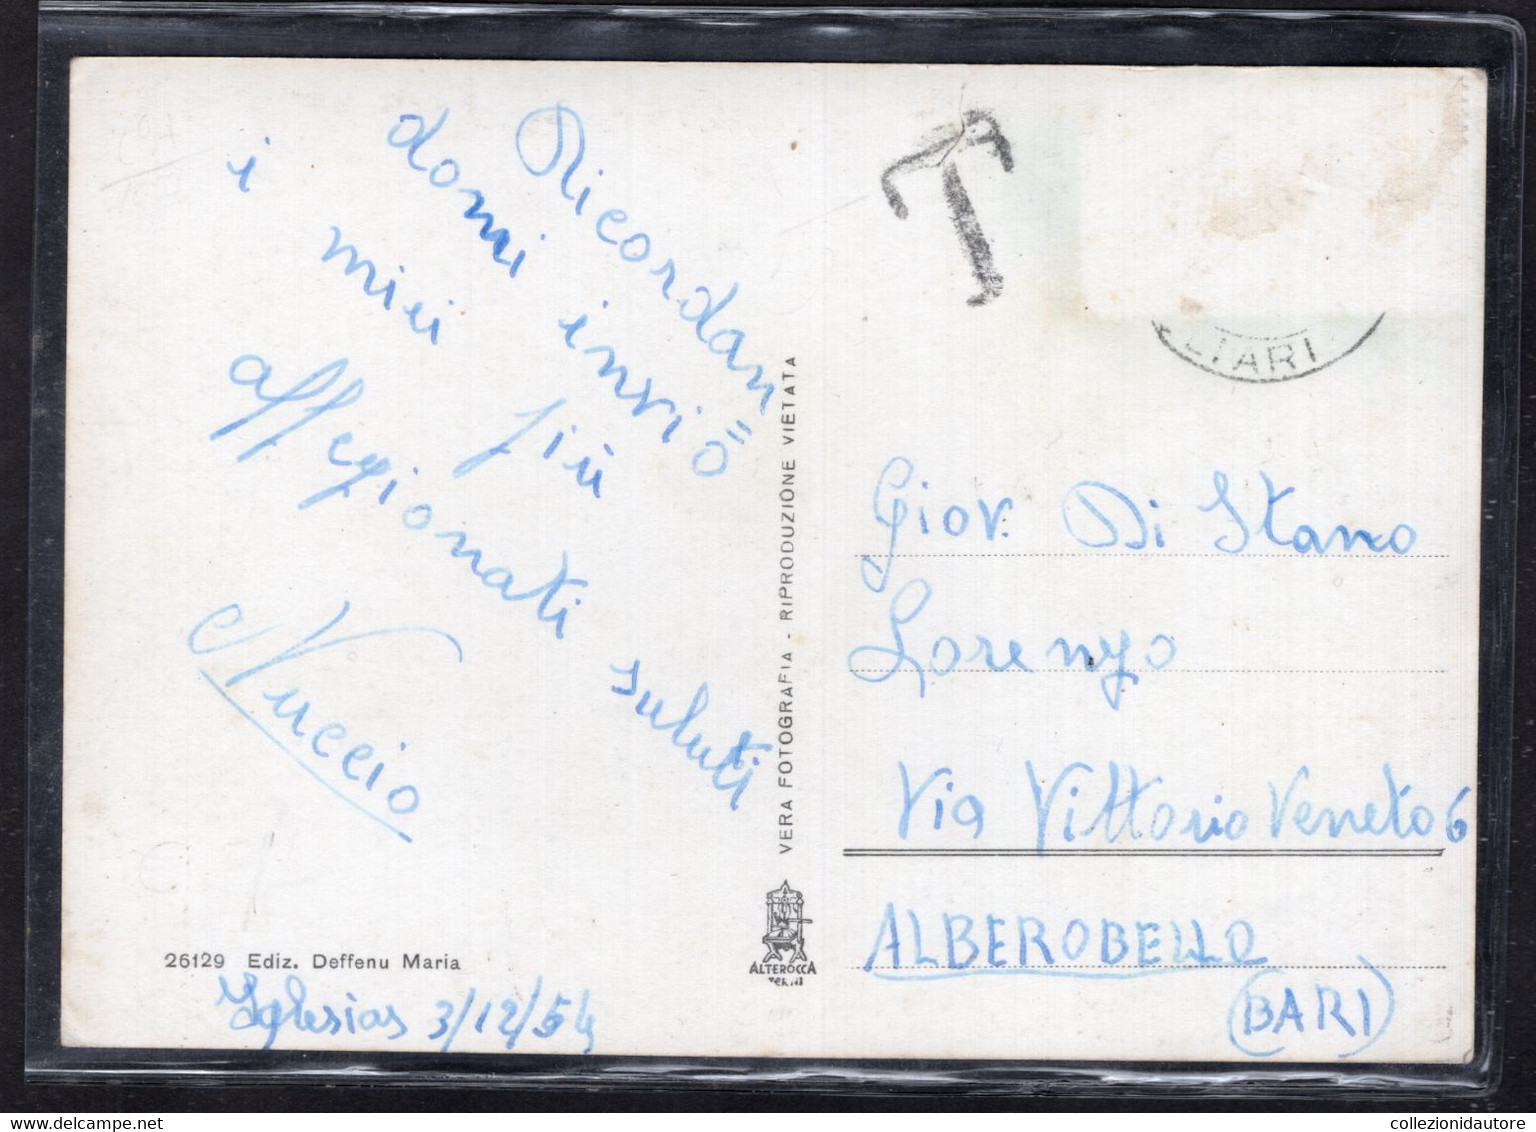 Ricordan
domi invio=
i miei più
affezionati saluti
Nuccio
26129 Ediz. Deffenu Maria
Iglesias 3/12/54
VERA FOTOGRAFIA - RIPRODUZIONE VIETATA
ALTEROCCA
TERNI
T
LTARI
Giov. Di Stano
Lorenzo
Via Vittorio Veneto 6
ALBEROBELLO
(BARI)
collezionidautore